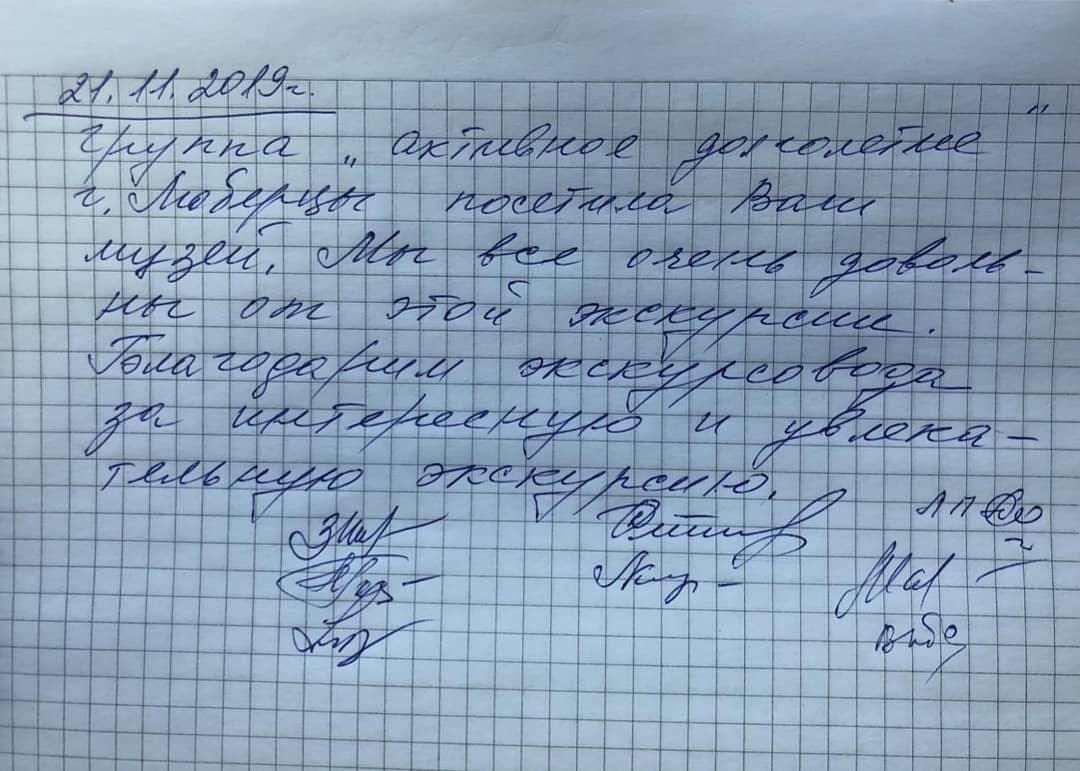 21.11.2019г.
Группа „активное долголетие"
г. Люберцы посетила Ваш
музей. Мы все очень доволь-
ны от этой экскурсии.
Благодарим экскурсовода
за интересную и увлека-
тельную экскурсию.